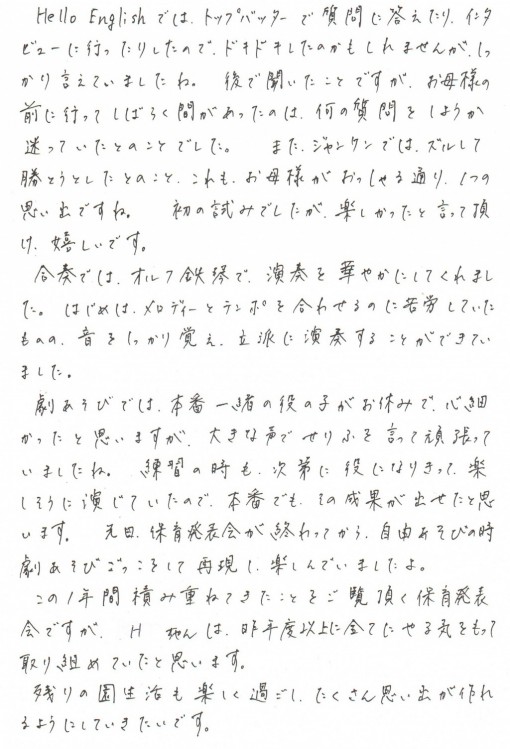 Hello Englishでは、トップバッターで質問に答えたり、インタ
ビューに行ったりしたので、ドキドキしたのかもしれませんが、しっ
かり言えていましたね。 後で聞いたことですが、お母様の
前に行ってしばらく間があったのは、何の質問をしようか
迷っていたとのことでした。 また、ジャンケンでは、ズルして
勝とうとしたとのこと、これも、お母様がおっしゃる通り、1つの
思い出ですね。 初の試みでしたが、楽しかったと言って頂
け、嬉しいです。
合奏では、オルフ鉄琴で、演奏を華やかにしてくれまし
た。はじめは、メロディーとテンポを合わせるのに苦労していた
ものの、音をしっかり覚え、立派に演奏することができてい
ました。
劇あそびでは、本番一緒の役の子がお休みで、心細
かったと思いますが、大きな声でせりふを言って頑張って
いましたね。 練習の時も、次第に役になりきって、楽
しそうに演じていたので、本番でも、その成果が出せたと思
います。 先日、保育発表会が終わってから、自由あそびの時
劇あそびごっこをして再現し、楽しんでいましたよ。
この1年間積み重ねてきたことをご覧頂く保育発表
会ですが、H ちゃんは、昨年度以上に全てにやる気をもって
取り組めていたと思います。
残りの園生活も楽しく過ごし、たくさん思い出が作れ
るようにしていきたいです。